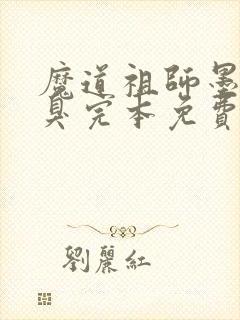 魔道祖師墨
臭完本免費
劉麗紅